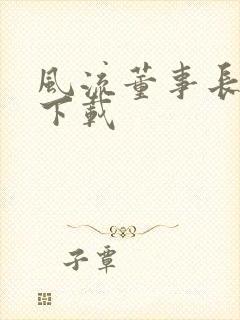 風流董事長
下載
子覃